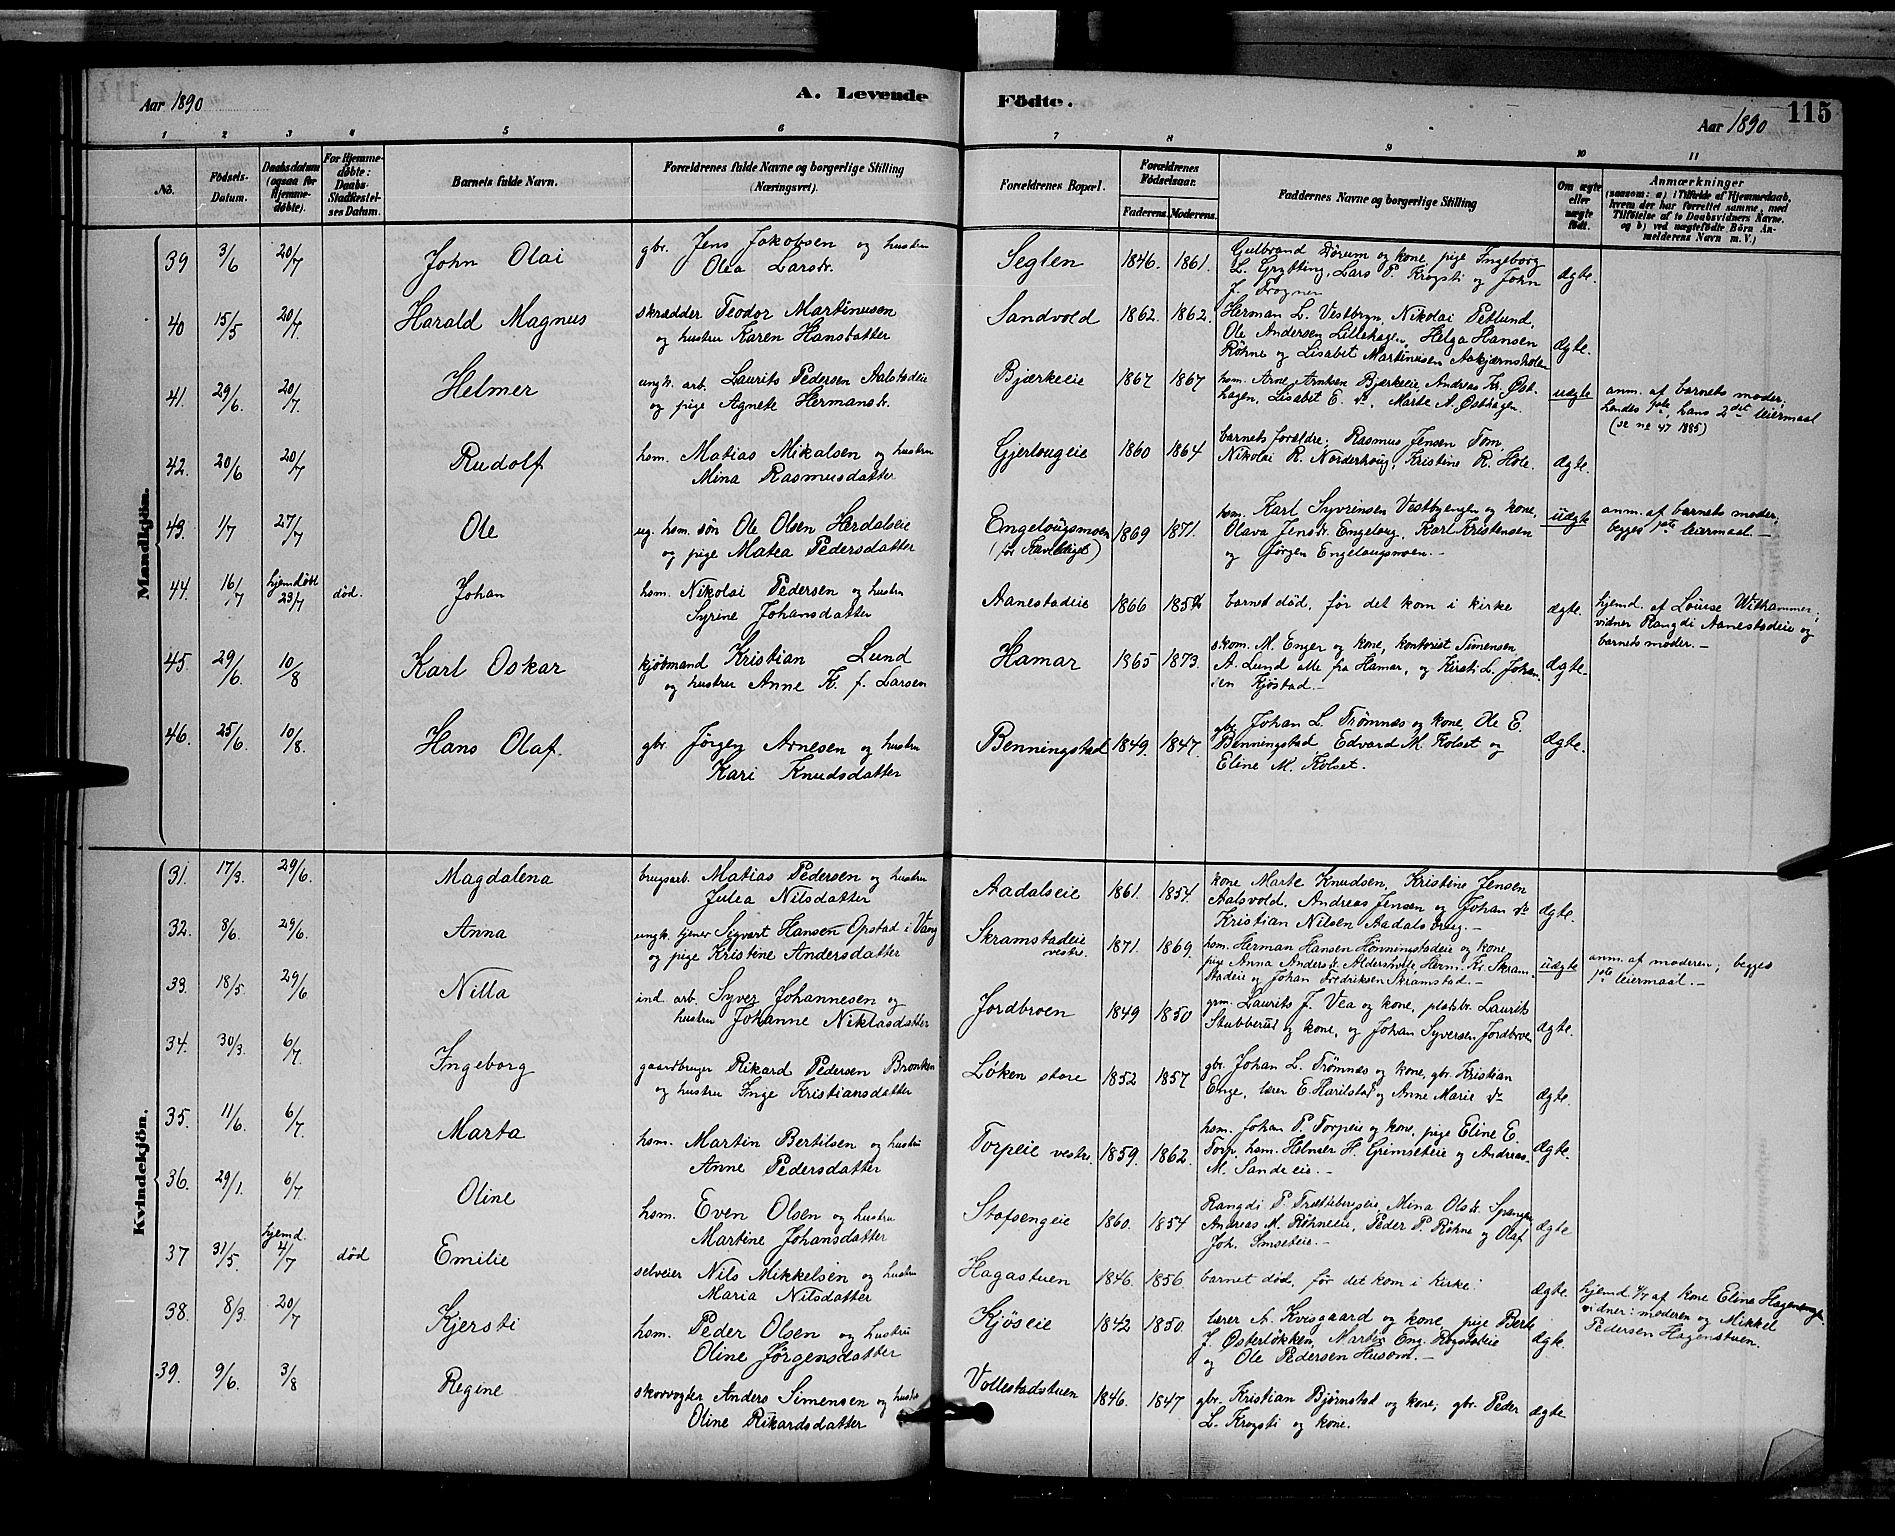 Aar 1890
A. Levende
Födte.
Aar 1890
115
1 2 3 4 5 6 7 8 9 10 11
No.
Födsels-Datum.
Daabsdatum (ogsaa for Hjemme-döbte).
For Hjemme-döbte: Daabs-Stadfæstel-ses Datum.
Barnets fulde Navn.
Forældrenes fulde Navne og borgerlige Stilling (Næringsvei).
Forældrenes Bopæl.
Forældrenes Födselsaar.
Faderens. Moderens.
Faddernes Navne og borgerlige Stilling
Om ægte eller uægte födt.
Anmærkninger
(saasom: a) i Tilfælde af Hjemmedaab, hvem der har forrettet samme, med Tilföielse af to Daabsvidners Navne, og b) ved uægtefödte Börn An-melderens Navn m. V.)
Mandkjön.
39 3/6 20/7 John Olai gbr. Jens Jakobsen og hustru
Olea Larsdr. Seglen 1846. 1861. Gulbrand Dørum og kone, pige Ingeborg
L. Grytting, Lars P. Krogsti og John
J. Frogner ægte.
40 15/5 20/7. Harald Magnus skrædder Teodor Martinusen
og hustru Karen Hansdatter Sandvold 1862. 1862. Herman L. Vestbyn, Nikolai Petlund,
Ole Andersen Lillehagen, Helga Hansen
Röhne og Lisabet Martinusen ægte.
41. 29/6. 20/7. Helmer ungk. arb. Laurits Pedersen
og pige Agnete Hermansdr. Bjærkeie 1867 1867 hsm. Arne Arntsen Bjærkeie, Andreas Kr. Øst-
hagen, Lisabet E. do, Marte A. Østhagen. uægte anm. af barnets moder,
hendes 1ste, hans 2det leiermaal
(se no 47 1885)
42. 20/6 20/7 Rudolf hsm. Matias Mikalsen og hustru
Mina Rasmusdatter Gjerlougeie 1860 1864 barnets forældre, Rasmus Jensen Tom,
Nikolai R. Norderhoug, Kristine R. Hole. ægte.
43. 1/7 27/7 Ole ug. hsm. søn Ole Olsen Herdalseie
og pige Matea Pedersdatter Engelougsmoen 1869 1871. hsm. Karl Syvrinsen Vestbyengen og kone,
Olava Jensdr. Engeloug, Karl Kristensen
og Jørgen Engelougsmoen.— uægte anm. af barnets moder,
begges 1ste leiermaal.—
44. 16/7 hjemdøbt 23/7 død. Johan hsm. Nikolai Pedersen og hustru
Syrine Johansdatter Aanestadeie 1866 barnet død, før det kom i kirke ægte. hjemd. af Louise Withammer,
vidner Rangdi Aanestadeie og
barnets moder.—
45 29/6. 10/8 Karl Oskar kjøbmand Kristian Lund
og hustru Anne K. f. Larsen Hamar 1865 1873. skom. M. Enger og kone, kontorist Simensen,
A. Lund alle fra Hamar, og Kirsti L. Johan-
sen Kjøstad.— ægte.
46. 25/6. 10/8. Hans Olaf. gbr. Jørgen Arnesen og hustru
Kari Knudsdatter Benningstad 1849. 1847. gbr. Johan L. Trømnæs og kone, Ole E.
Benningstad, Edvard M. Kolset og
Eline M. Kolset. ægte.
Kvindekjön.
31. 17/3. 29/6. Magdalena brugsarb. Matias Pedersen og hustru
Julea Nilsdatter Aadalseie 1861. 1854. kone Marte Knudsen, Kristine Jensen
Aalsvold, Andreas Jensen og Johan do
Kristian Nilsen Aadalsbrug.— ægte.
32. 8/6. 29/6. Anna ungk. tjener Sigvart Hansen Opstad i Vang
og pige Kristine Andersdatter Skramstadeie vestre. 1871. 1869. hsm. Herman Hansen Hønningstadeie og kone,
pige Anna Andersdr. Aldershvile, Herm. Kr. Skram-
stadeie og Johan Fredriksen Skramstad.— uægte anm. af moderen; begges
1ste leiermaal.—
33. 18/5. 29/6 Nilla ind. arb. Syver Johannesen og
hustru Johanne Niklasdatter Jordbroen 1849 1850 grm. Laurits J. Vea og kone, pladsbr. Laurits
Stubberud og kone, og Johan Syversen Jordbroen ægte.
34. 30/3. 6/7. Ingeborg gaardbruger Rikard Pedersen Bronken
og hustru Inge Kristiansdatter Løken store 1852 1857 gbr. Johan L. Trømnæs og kone, gbr. Kristian
Enge, lærer E. Harilstad og Anne Marie do ægte.
35. 11/6. 6/7. Marta hsm. Martin Bertilsen og hustru
Anne Pedersdatter Torpeie vestre. 1859. 1862. hsm. Johan P. Torpeie og kone, pige Eline E.
Torp, hsm. Helmer H. Grimseteie og Andreas
M. Sandeeie.— ægte.
36. 29/1. 6/7 Oline hsm. Even Olsen og hustru
Martine Johansdatter Stofsengeie 1860. 1854 Rangdi P. Trætteberyeie, Mina Olsdr.
Andreas M. Röhneeie, Peder P. Röhne og Olaf
Joh. Imseteie.— ægte
37 31/5. hjemd. 4/7 død Emilie selveier Nils Mikkelsen og hustru
Maria Nilsdatter Hagastuen 1846. 1856 barnet død, før det kom i kirke. ægte. hjemd 4/7 af kone Eline Hagenengen
vidner: moderen og Mikkel
Pedersen Hagenstuen.
38. 8/3. 20/7 Kjersti hsm. Peder Olsen og hustru
Oline Jørgensdatter Kjøseie 1842 1850. lærer A. Kvisgaard og kone, pige Berte
J. Østerløkken, Martin Eng. Rogstadeie
og Ole Pedersen Husom.— ægte.
39. 9/6. 3/8 Regine skovvogter Anders Simensen og hustru
Oline Rikardsdatter Vollestadstuen 1846. 1847 gbr. Kristian Bjørnstad og kone; gbr. Peder
L. Krogsti og kone. ægte